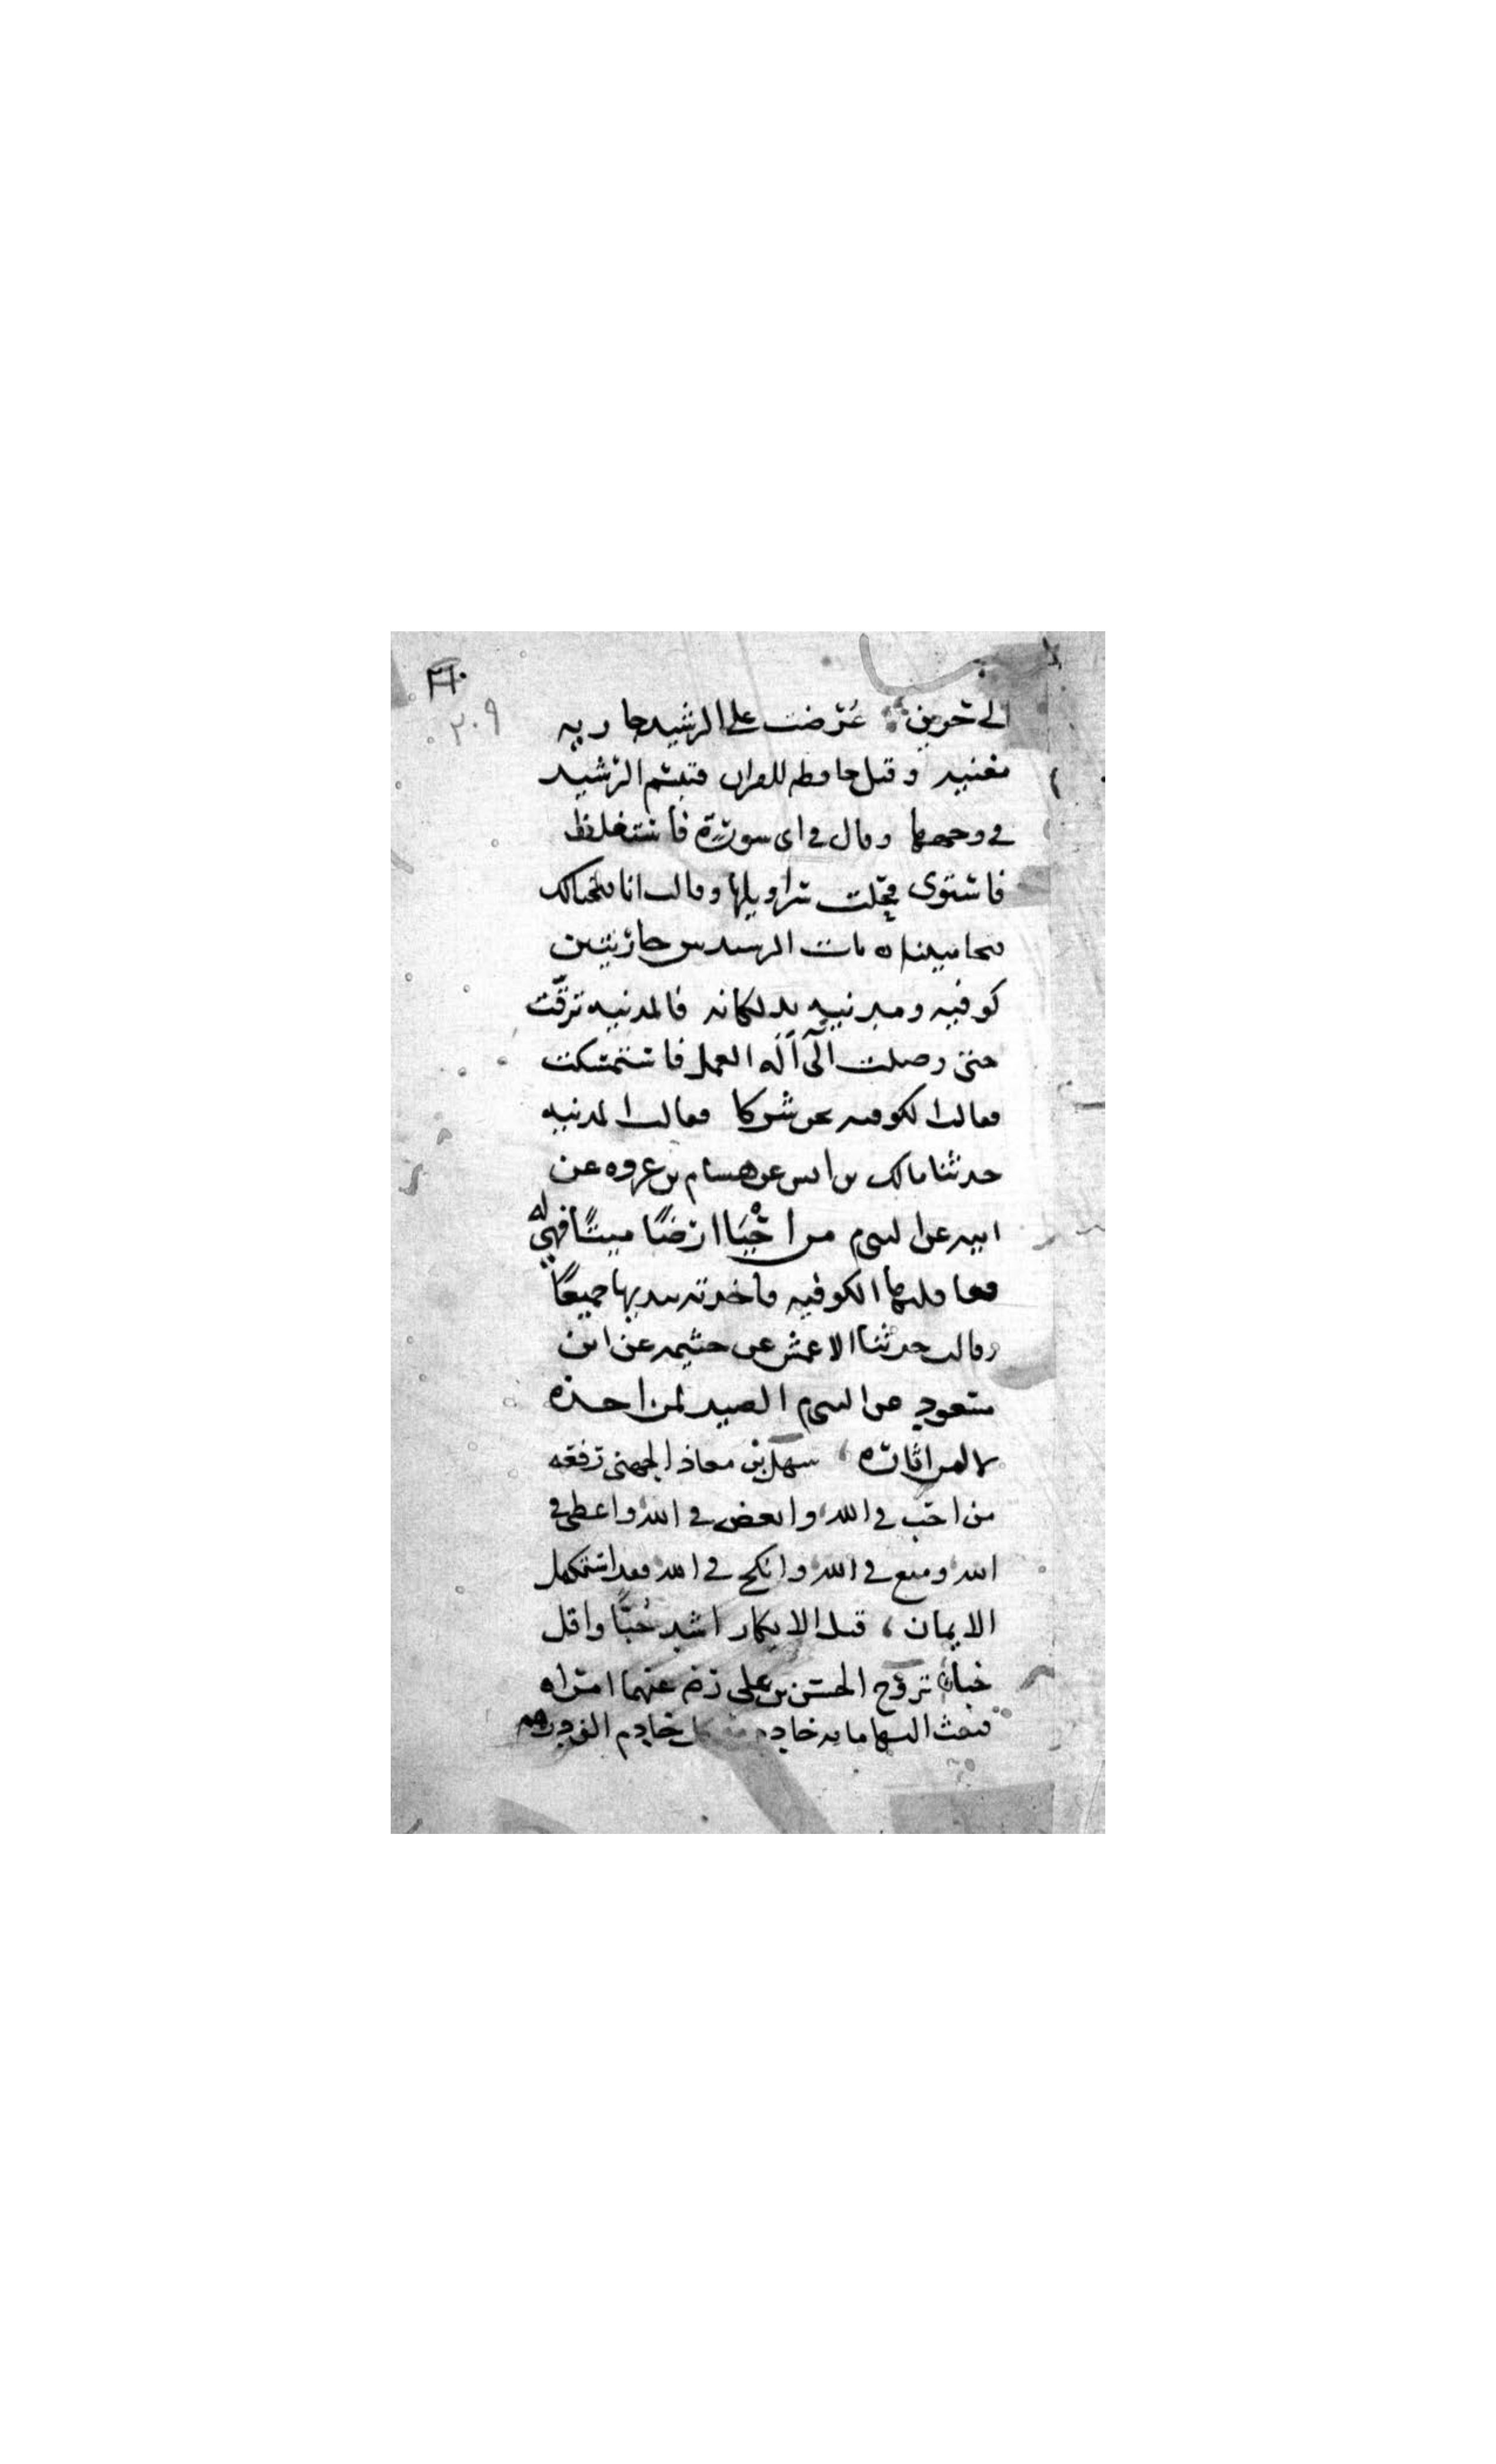 ٢١٠
٢٠٩
الى حومين عُرضت على الرشيد جاريه
مغنيه وقيل حافظه للقران فتبسم الرشيد
في وجهها وقال في اى سورة فاستغلظ
فاستوى فحلت سراويلها وقالت انا فتحنا لك
فتحا مبينا ٥ بات الرشيد بين جاريتين
كوفيه ومدنيه يدلكانه فالمدنيه ترقّت
حتى وصلت الى آله العمل فاستمسكت
فقالت الكوفيه نحن شركا فقالت المدنيه
حدثنا مالك بن انس عن هشام بن عروه عن
ابيه عن النبي م من احْيَا ارضًا ميتًا فهي له
فغافلتها الكوفيه فاخذته بيديها جميعًا
وقالت حدثنا الاعمش عن خثيمه عن ابن
مسعود عن النبي م الصيد لمن اخذه
لا لمن اثاره سهل بن معاذ الجهني رفعه
من احب في الله وابغض في الله واعطى في
الله ومنع في الله وانكح في الله فقد استكمل
الايمان، قيل الابكار اشد حُبًّا واقل
خبا تزوج الحسن بن علي رضي عنهما امراه
فبعث اليها مايه خادم كل خادم الف درهم